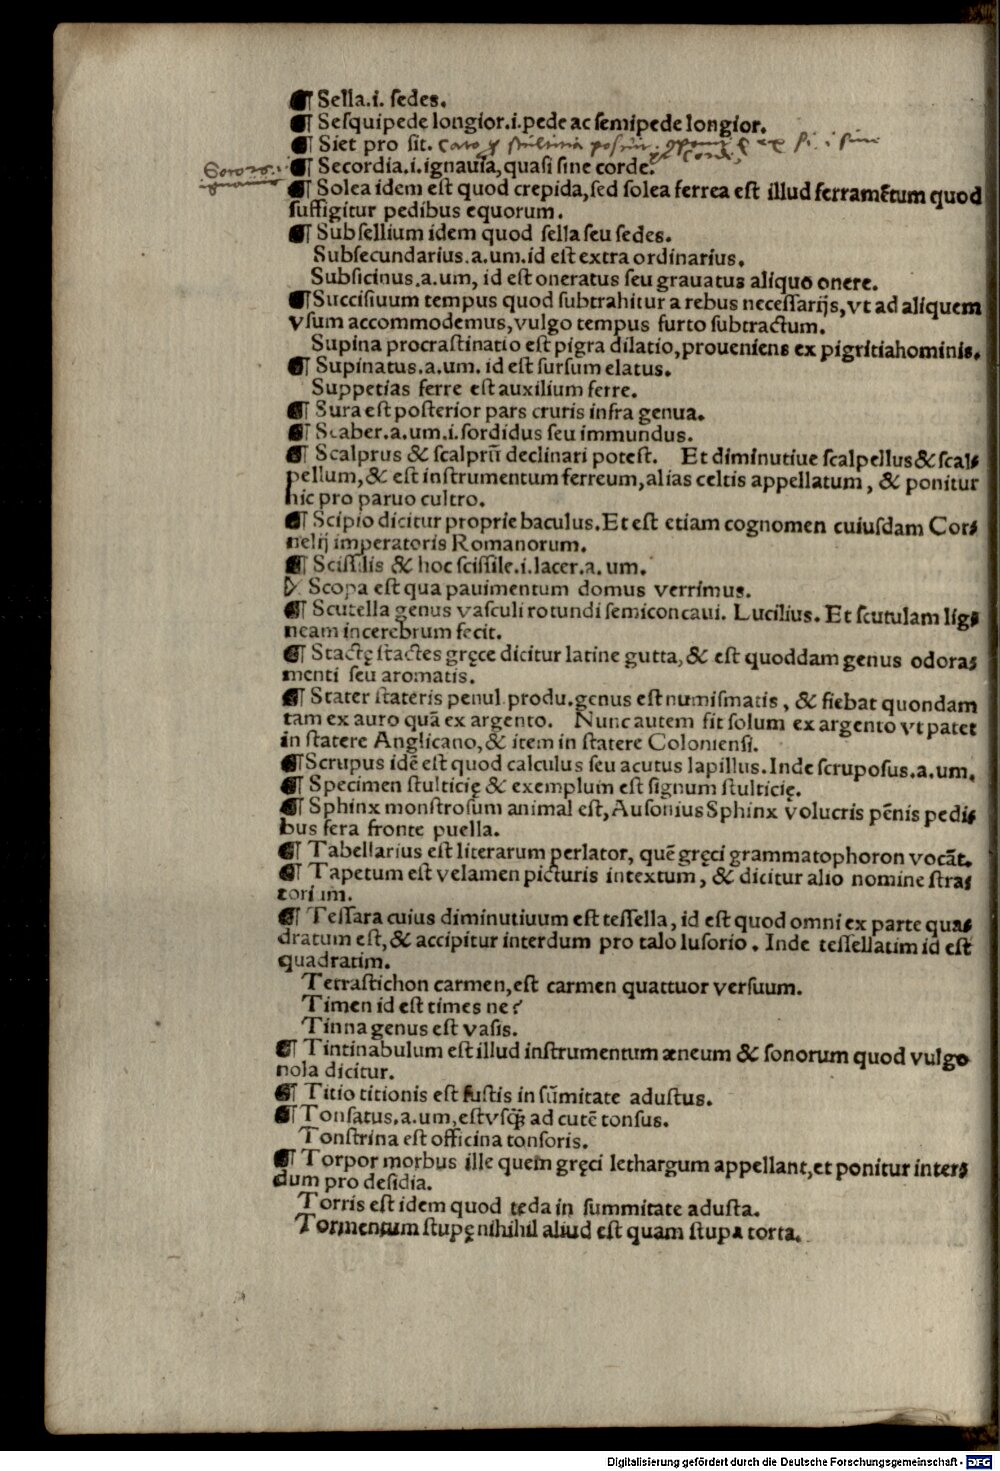 ¶ Sella.i. ſedes.
¶ Seſquipede longior.i.pede ac ſemipede longior.
¶ Siet pro ſit.
¶ Secordia.i.ignauia,quaſi ſine corde.
¶ Solea idem eſt quod crepida,ſed ſolea ferrea eſt illud ferramẽtum quod
ſuffigitur pedibus equorum.
¶ Subſellium idem quod ſella ſeu ſedes.
Subſecundarius.a.um.id eſt extra ordinarius.
Subſicinus.a.um, id eſt oneratus ſeu grauatus aliquo onere.
¶ Succiſiuum tempus quod ſubtrahitur a rebus neceſſarijs,vt ad aliquem
vſum accommodemus,vulgo tempus furto ſubtractum.
Supina procraſtinatio eſt pigra dilatio,proueniens ex pigritiahominis.
¶ Supinatus.a.um. id eſt ſurſum elatus.
Suppetias ferre eſt auxilium ferre.
¶ Sura eſt poſterior pars cruris infra genua.
¶ Scaber.a.um.i.ſordidus ſeu immundus.
¶ Scalprus & ſcalprũ declinari poteſt. Et diminutiue ſcalpellus&ſcal⸗
pellum,& eſt inſtrumentum ferreum,alias celtis appellatum, & ponitur
hic pro paruo cultro.
¶ Scipio dicitur proprie baculus.Et eſt etiam cognomen cuiuſdam Cor⸗
nelij imperatoris Romanorum.
¶ Sciſſilis & hoc ſciſſile.i.lacer.a.um.
Scopa eſt qua pauimentum domus verrimus.
¶ Scutella genus vaſculi rotundi ſemiconcaui. Lucilius. Et ſcutulam lig⸗
neam incerebrum fecit.
¶ Stactę ſtactes gręce dicitur latine gutta,& eſt quoddam genus odora⸗
menti ſeu aromatis.
¶ Stater ſtateris penul.produ.genus eſt numiſmatis, & fiebat quondam
tam ex auro quã ex argento. Nunc autem fit ſolum ex argento vt patet
in ſtatere Anglicano,& item in ſtatere Colonienſi.
¶ Scrupus idẽ eſt quod calculus ſeu acutus lapillus.Inde ſcrupoſus.a.um.
¶ Specimen ſtulticię & exemplum eſt ſignum ſtulticię.
¶ Sphinx monſtroſum animal eſt,Auſonius Sphinx volucris pẽnis pedi⸗
bus fera fronte puella.
¶ Tabellarius eſt literarum perlator, quẽ gręci grammatophoron vocãt.
¶ Tapetum eſt velamen picturis intextum, & dicitur alio nomine ſtra⸗
torium.
¶ Teſſara cuius diminutiuum eſt teſſella, id eſt quod omni ex parte qua⸗
dratum eſt,& accipitur interdum pro talo luſorio. Inde teſſellatim id eſt
quadratim.
Tetraſtichon carmen,eſt carmen quattuor verſuum.
Timen id eſt times ne?
Tinna genus eſt vaſis.
¶ Tintinabulum eſt illud inſtrumentum æneum & ſonorum quod vulgo
nola dicitur.
¶ Titio titionis eſt fuſtis in ſũmitate aduſtus.
¶ Tonſatus.a.um,eſtvſq̃ ad cutẽ tonſus.
Tonſtrina eſt officina tonſoris.
¶ Torpor morbus ille quem gręci lethargum appellant,et ponitur inter⸗
dum pro deſidia.
Torris eſt idem quod tęda in ſummitate aduſta.
Tormentum ſtupę nihihil aliud eſt quam ſtupa torta.
Digitalisierung gefördert durch die Deutsche Forschungsgemeinschaft - DFG